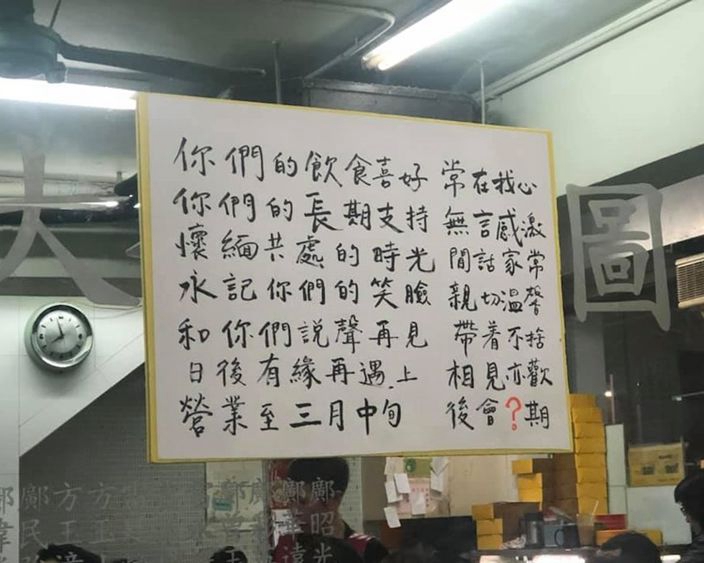 你們的飲食喜好 常在我心
你們的長期支持 無言感激
懷緬共處的時光 間話家常
永記你們的笑臉 親切溫馨
和你們說聲再見 帶着不捨
日後有緣再遇上 相見亦歡
營業至三月中旬 後會?期
大
圖